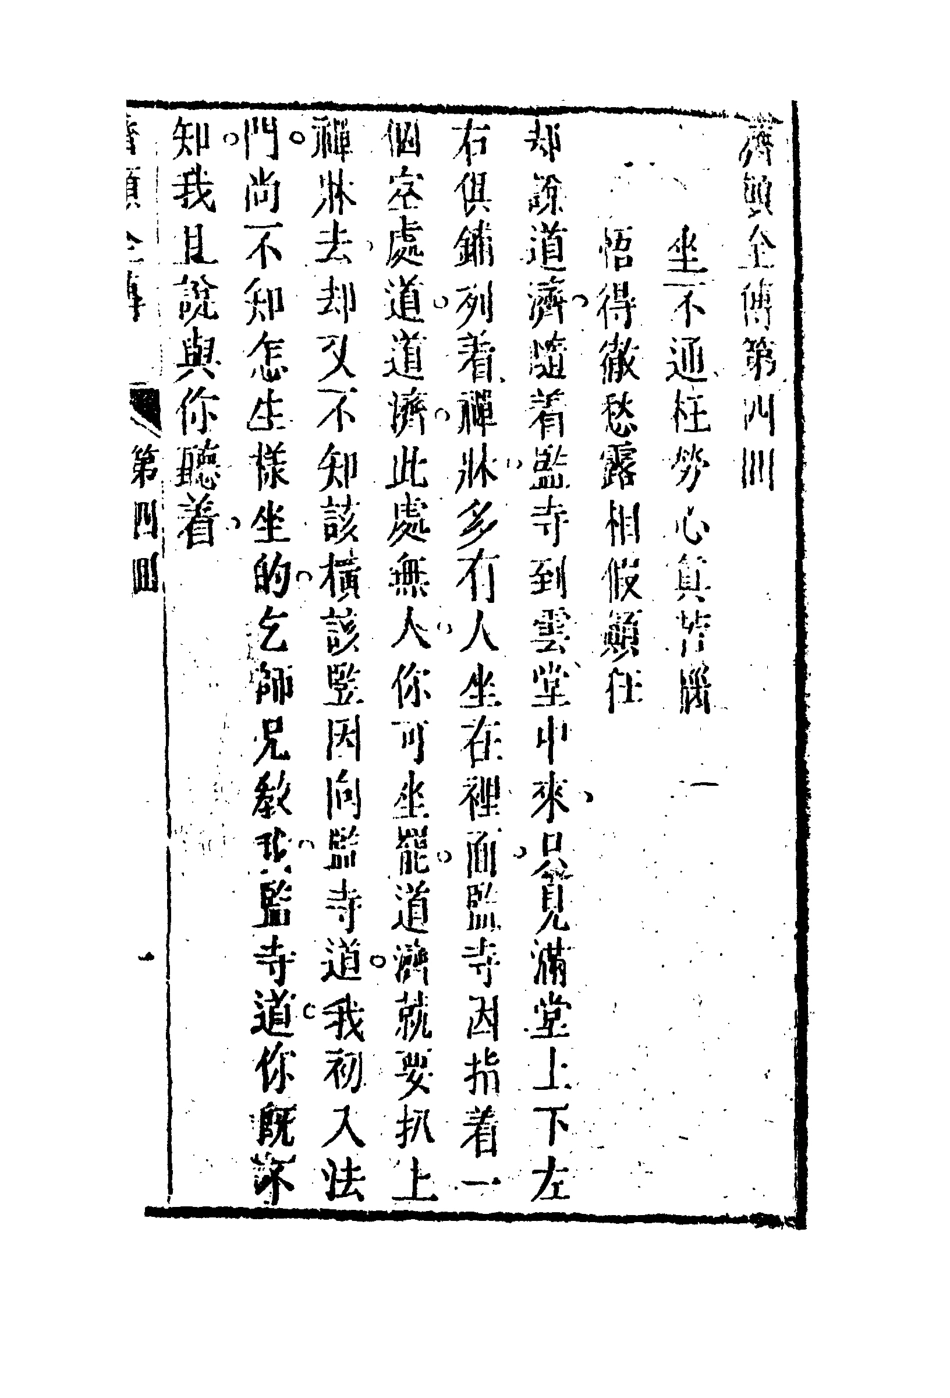 濟顛全傳第四回
坐不通枉勞心真苦惱
悟得徹愁露相假顛狂
却說道濟隨着監寺到雲堂中來只見滿堂上下左
右俱鋪列着禪牀多有人坐在裡面監寺因指着一
個空處道道濟此處無人你可坐罷道濟就要扒上
禪牀去却又不知該橫該竪因向監寺道我初入法
門尚不知怎生樣坐的乞師兄教我監寺道你既不
知我且說與你聽着
濟顛全傳 第四回